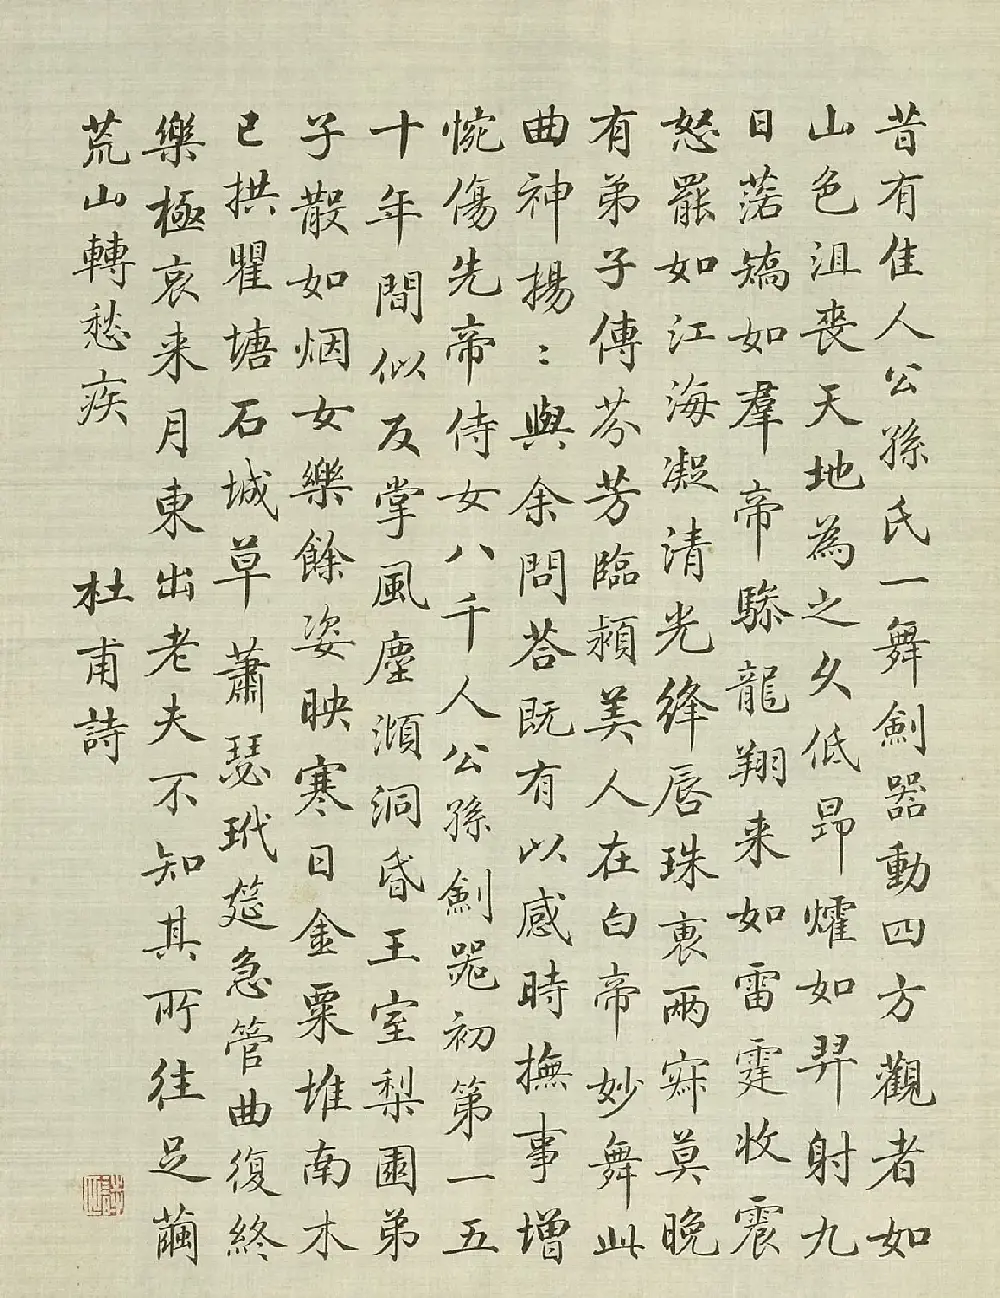 昔有佳人公孫氏一舞劍器動四方觀者如
山色沮喪天地為之久低昂㸌如羿射九
日落矯如羣帝驂龍翔来如雷霆收震
怒罷如江海凝清光絳唇珠褎兩寂莫晚
有弟子傳芬芳臨潁美人在白帝妙舞此
曲神揚〻與余問荅既有以感時撫事增
惋傷先帝侍女八千人公孫劍器初第一五
十年間似反掌風塵澒洞昏王室梨園弟
子散如烟女樂餘姿映寒日金粟堆南木
已拱瞿塘石城草蕭瑟玳筵急管曲復終
樂極哀来月東出老夫不知其所往足繭
荒山轉愁疾 杜甫詩